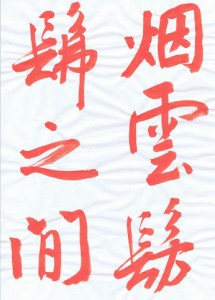 烟雲髣
髴之间